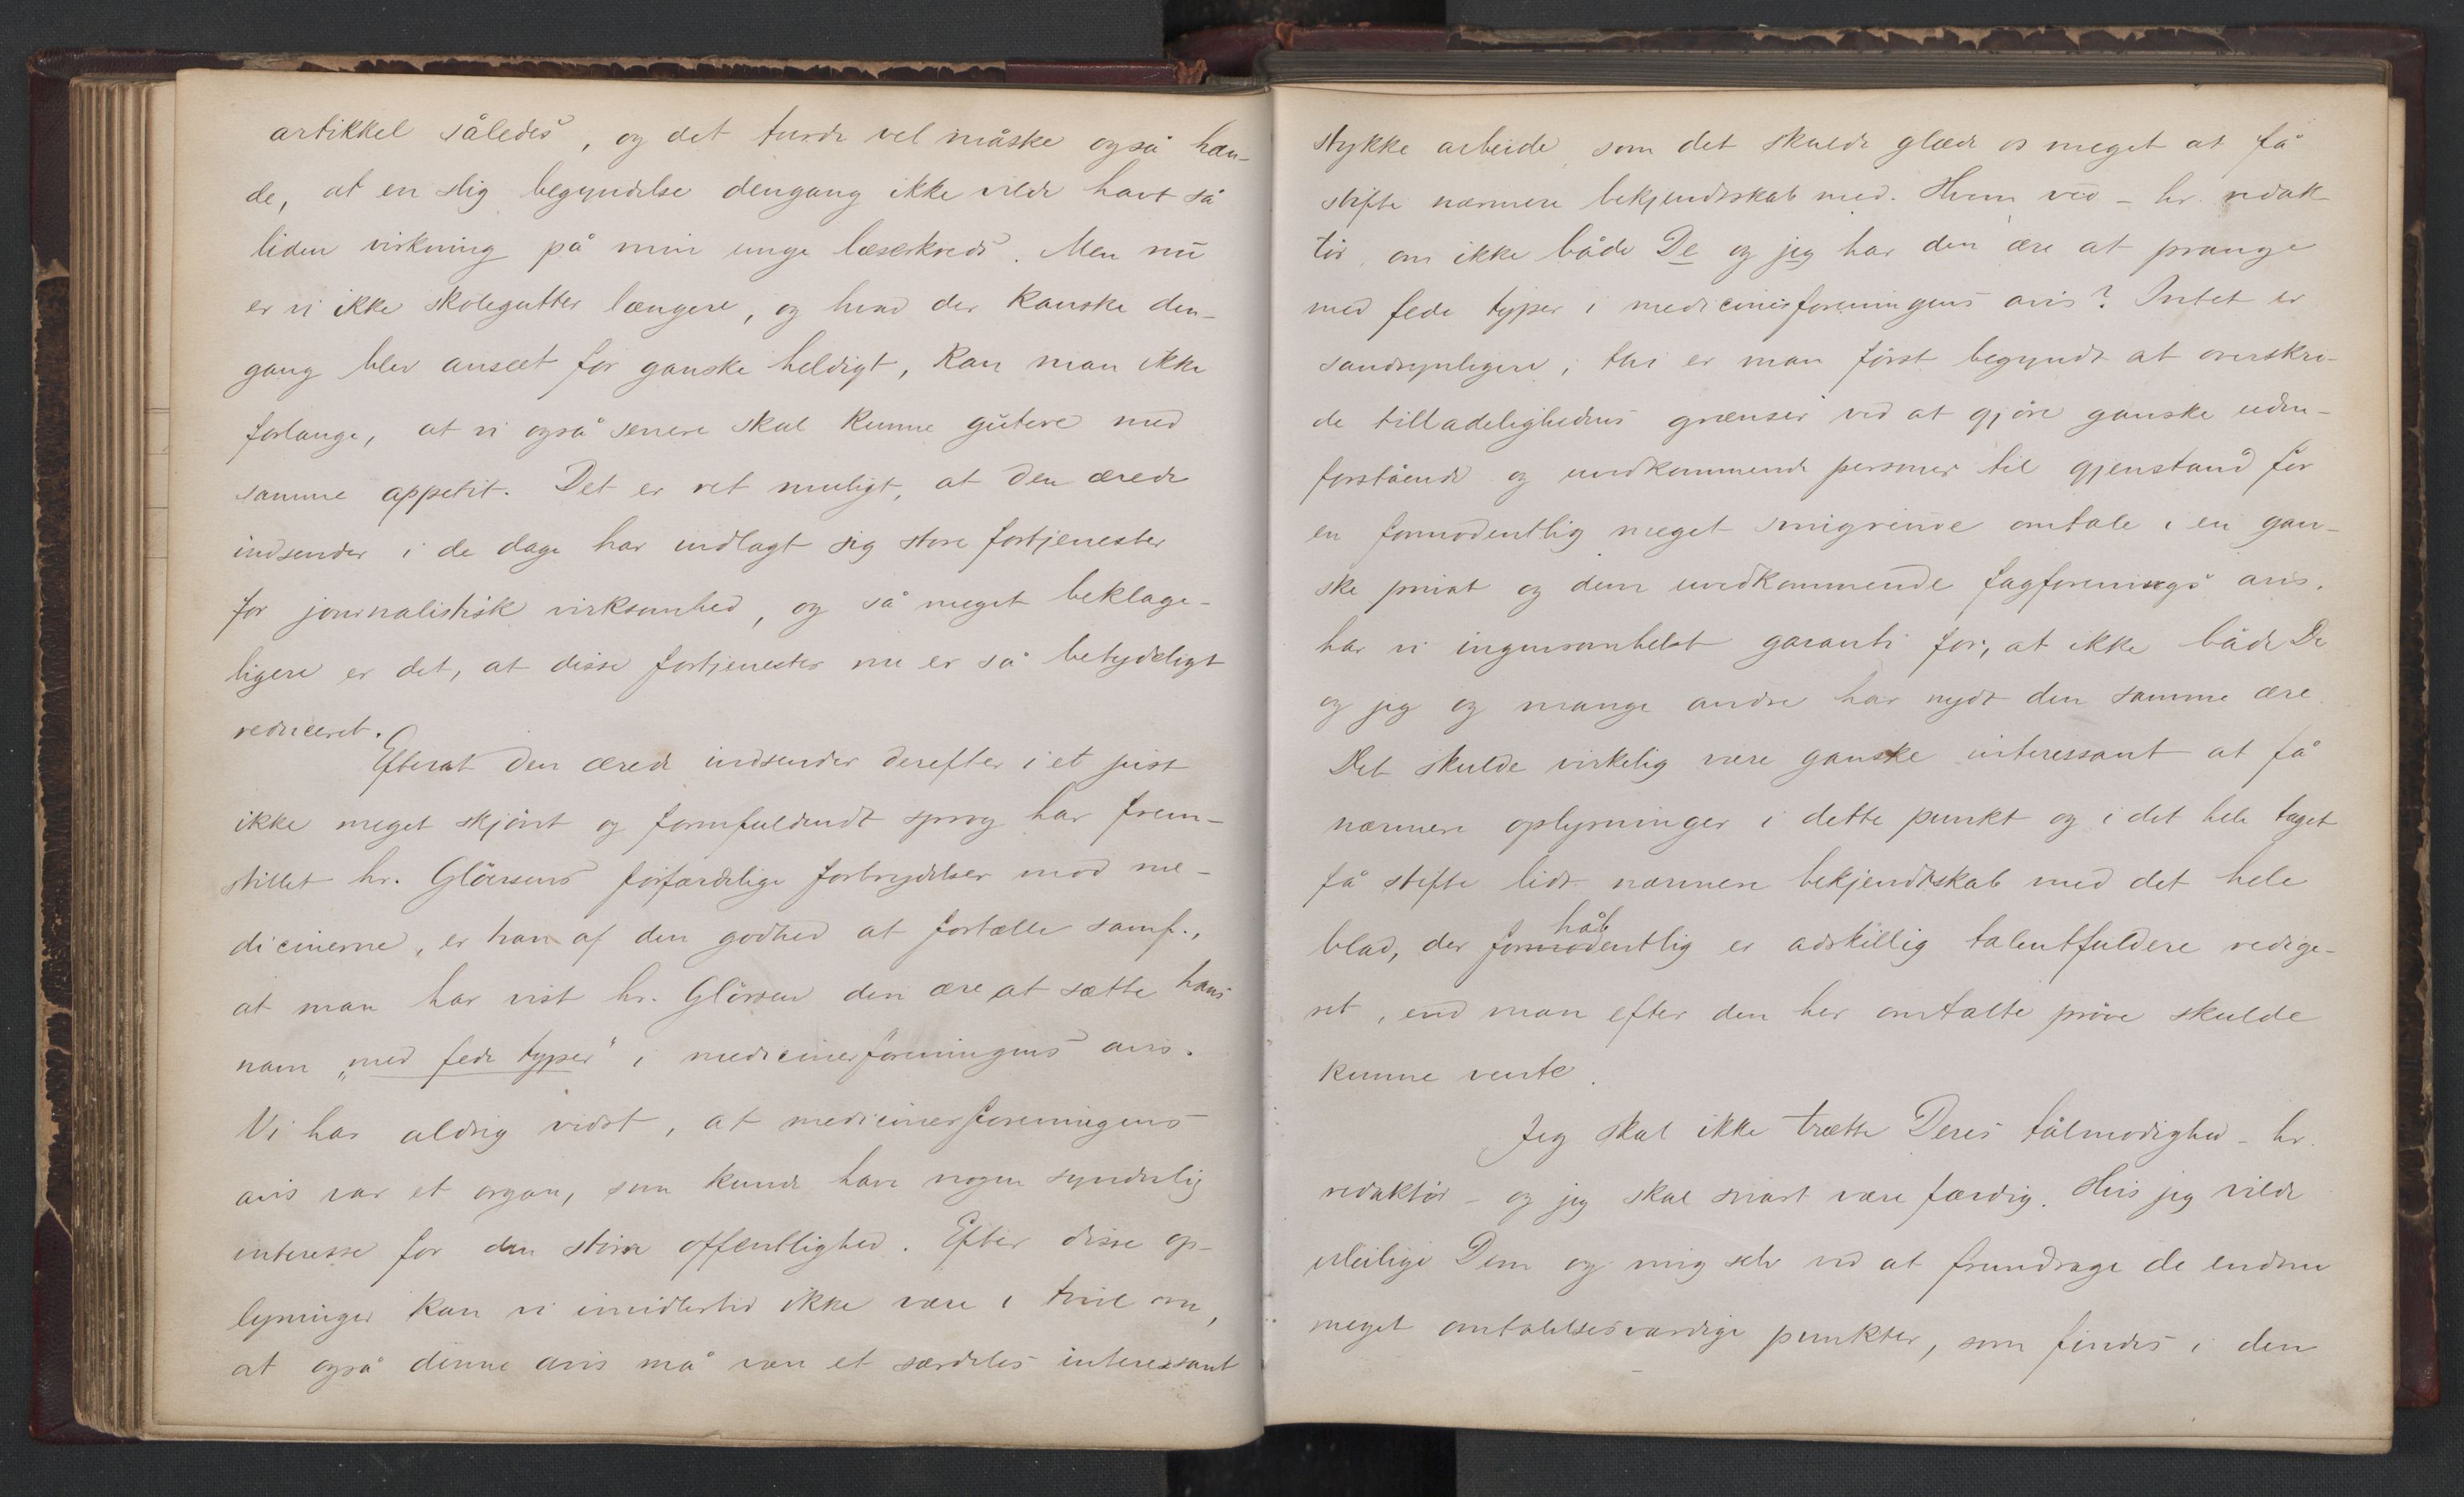 artikkel således, og det turde vel måske også hæn-
de, at en slig begyndelse dengang ikke vilde havt så
liden virkning på min unge læserkreds. Men nu
er vi ikke skolegutter længere, og hvad der kanske den-
gang blev anseet for ganske heldigt, kan man ikke
forlange, at vi også senere skal kunne gutere med
samme appetit. Det er ret muligt, at den ærede
indsender i de dage har indlagt sig store fortjenester
for journalistisk virksomhed, og så meget beklage-
ligere er det, at disse fortjenester nu er så betydeligt
reduceret.
Efterat den ærede indsender derefter i et just
ikke meget skjönt og formfuldendt sprog har frem-
stillet hr. Glörsens forfærdelige forbrydelser mod me-
dicinerne, er han af den godhed at fortælle samf.,
at man har vist hr. Glörsen den ære at sætte hans
navn „med fede typer" i medicinerforeningens avis.
Vi har aldrig vidst, at medicinerforeningens
avis var et organ, som kunde have nogen synderlig
interesse for den store offentlighed. Efter disse op-
lysninger kan vi imidlertid ikke være i tvivl om,
at også denne avis må være et særdeles interessant
stykke arbeide, som det skulde glæde os meget at få
stifte nærmere bekjendtskab med. Hvem ved – hr. redak-
tör, om ikke både De og jeg har den ære at prange
med fede typer i medicinerforeningens avis? Intet er
sandsynligere; thi er man först begyndt at overskri-
de tilladelighedens grænser ved at gjöre ganske uden-
forstående og uvedkommende personer til gjenstand for
en formodentlig meget smigrende omtale i en gan-
ske privat og dem uvedkommende fagforenings avis,
har vi ingensomhelst garanti for, at ikke både De
og jeg og mange andre har nydt den samme ære.
Det skulde virkelig være ganske interessant at få
nærmere oplysninger i dette punkt og i det hele taget
få stifte lidt nærmere bekjendtskab med det hele
blad, der håbentlig er adskillig talentfuldere redige-
ret, end man efter den her omtalte pröve skulde
kunne vente.
Jeg skal ikke trætte Deres tålmodighed – hr.
redaktör – og jeg skal snart være færdig. Hvis jeg vilde
uleilige Dem og mig selv ved at fremdrage de endnu
meget omtalelsesværdige punkter, som findes i den